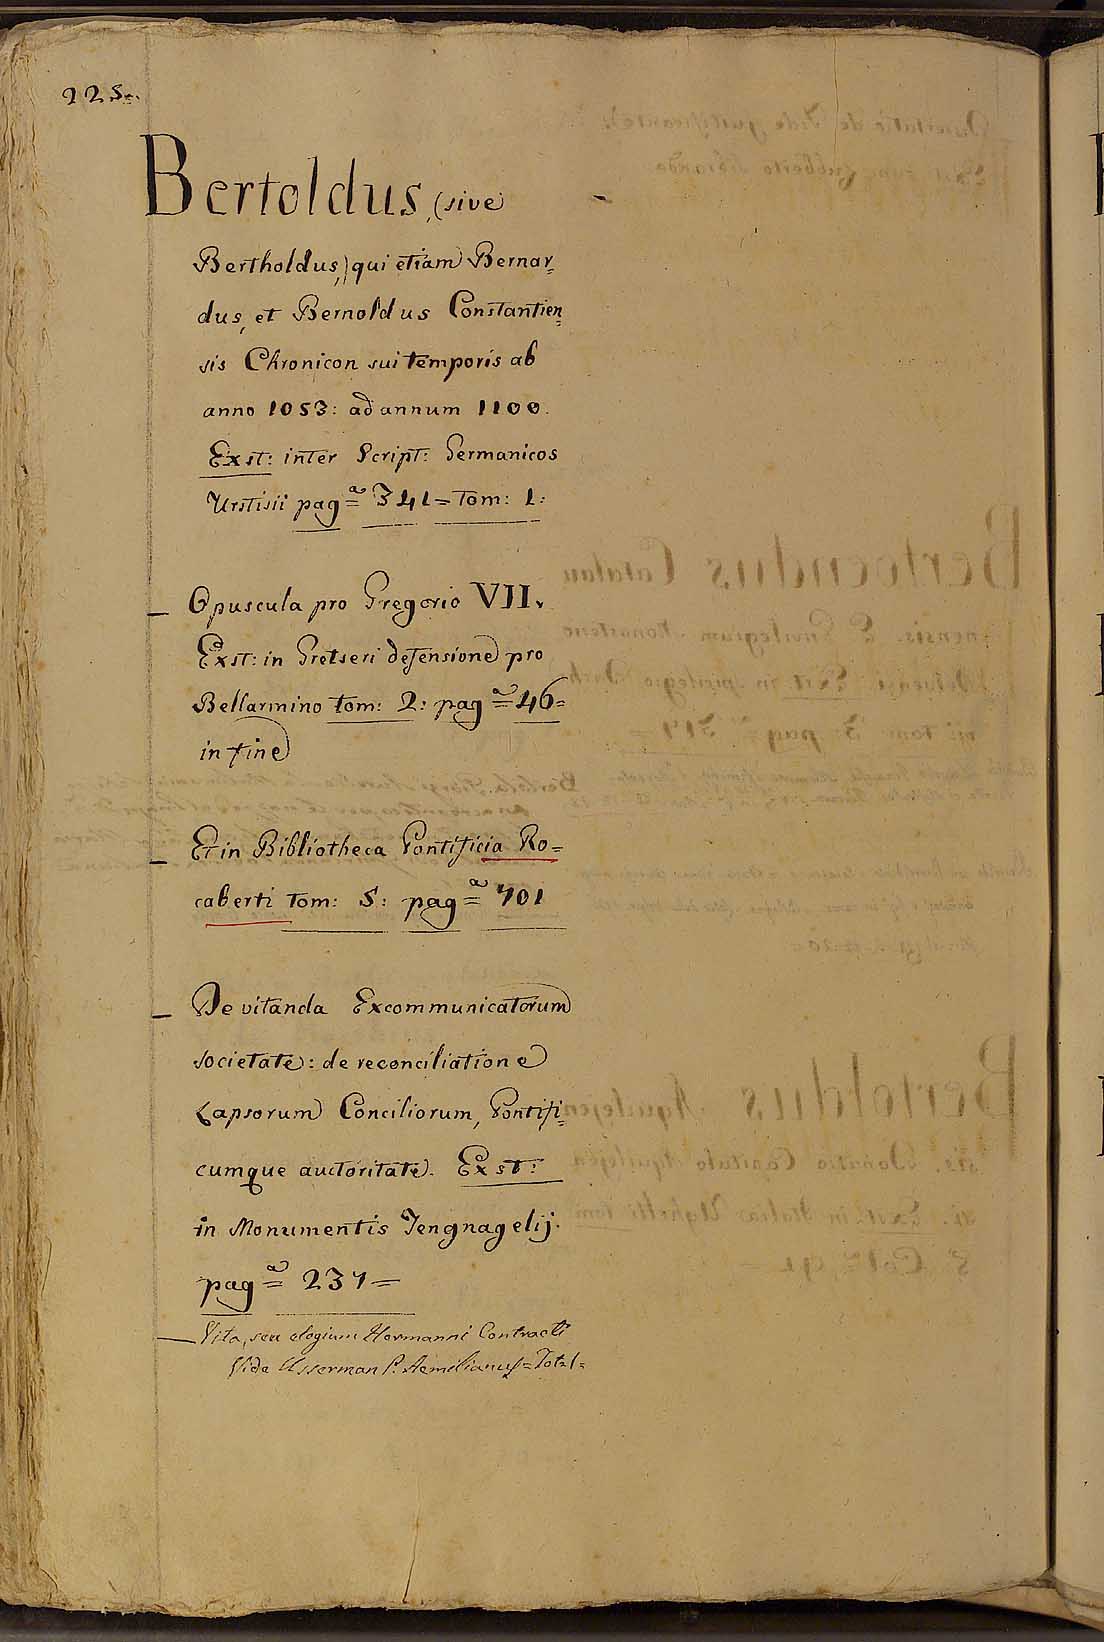 225.
Bertoldus, (sive
Bertholdus,) qui etiam Bernar=
dus, et Bernoldus Constantien=
sis Chronicon sui temporis ab
anno 1053: ad annum 1100.
Exst: inter Script: Germanicos
Urstisii pag.ª 341= tom: 1:
— Opuscula pro Gregorio VII.
Exst: in Gretseri defensione pro
Bellarmino tom: 2: pag.ª 46=
in fine
— Et in Bibliotheca Pontificia Ro=
caberti tom: 5: pag.ª 701
— De vitanda Excommunicatorum
societate: de reconciliatione
Lapsorum Conciliorum, Pontifi=
cumque auctoritate. Exst:
in Monumentis Tengnagelij.
pag.ª 237=
— Vita, seu elogium Hermanni Contracti
Vide Usserman P. Aemilianus= Tot. 1=